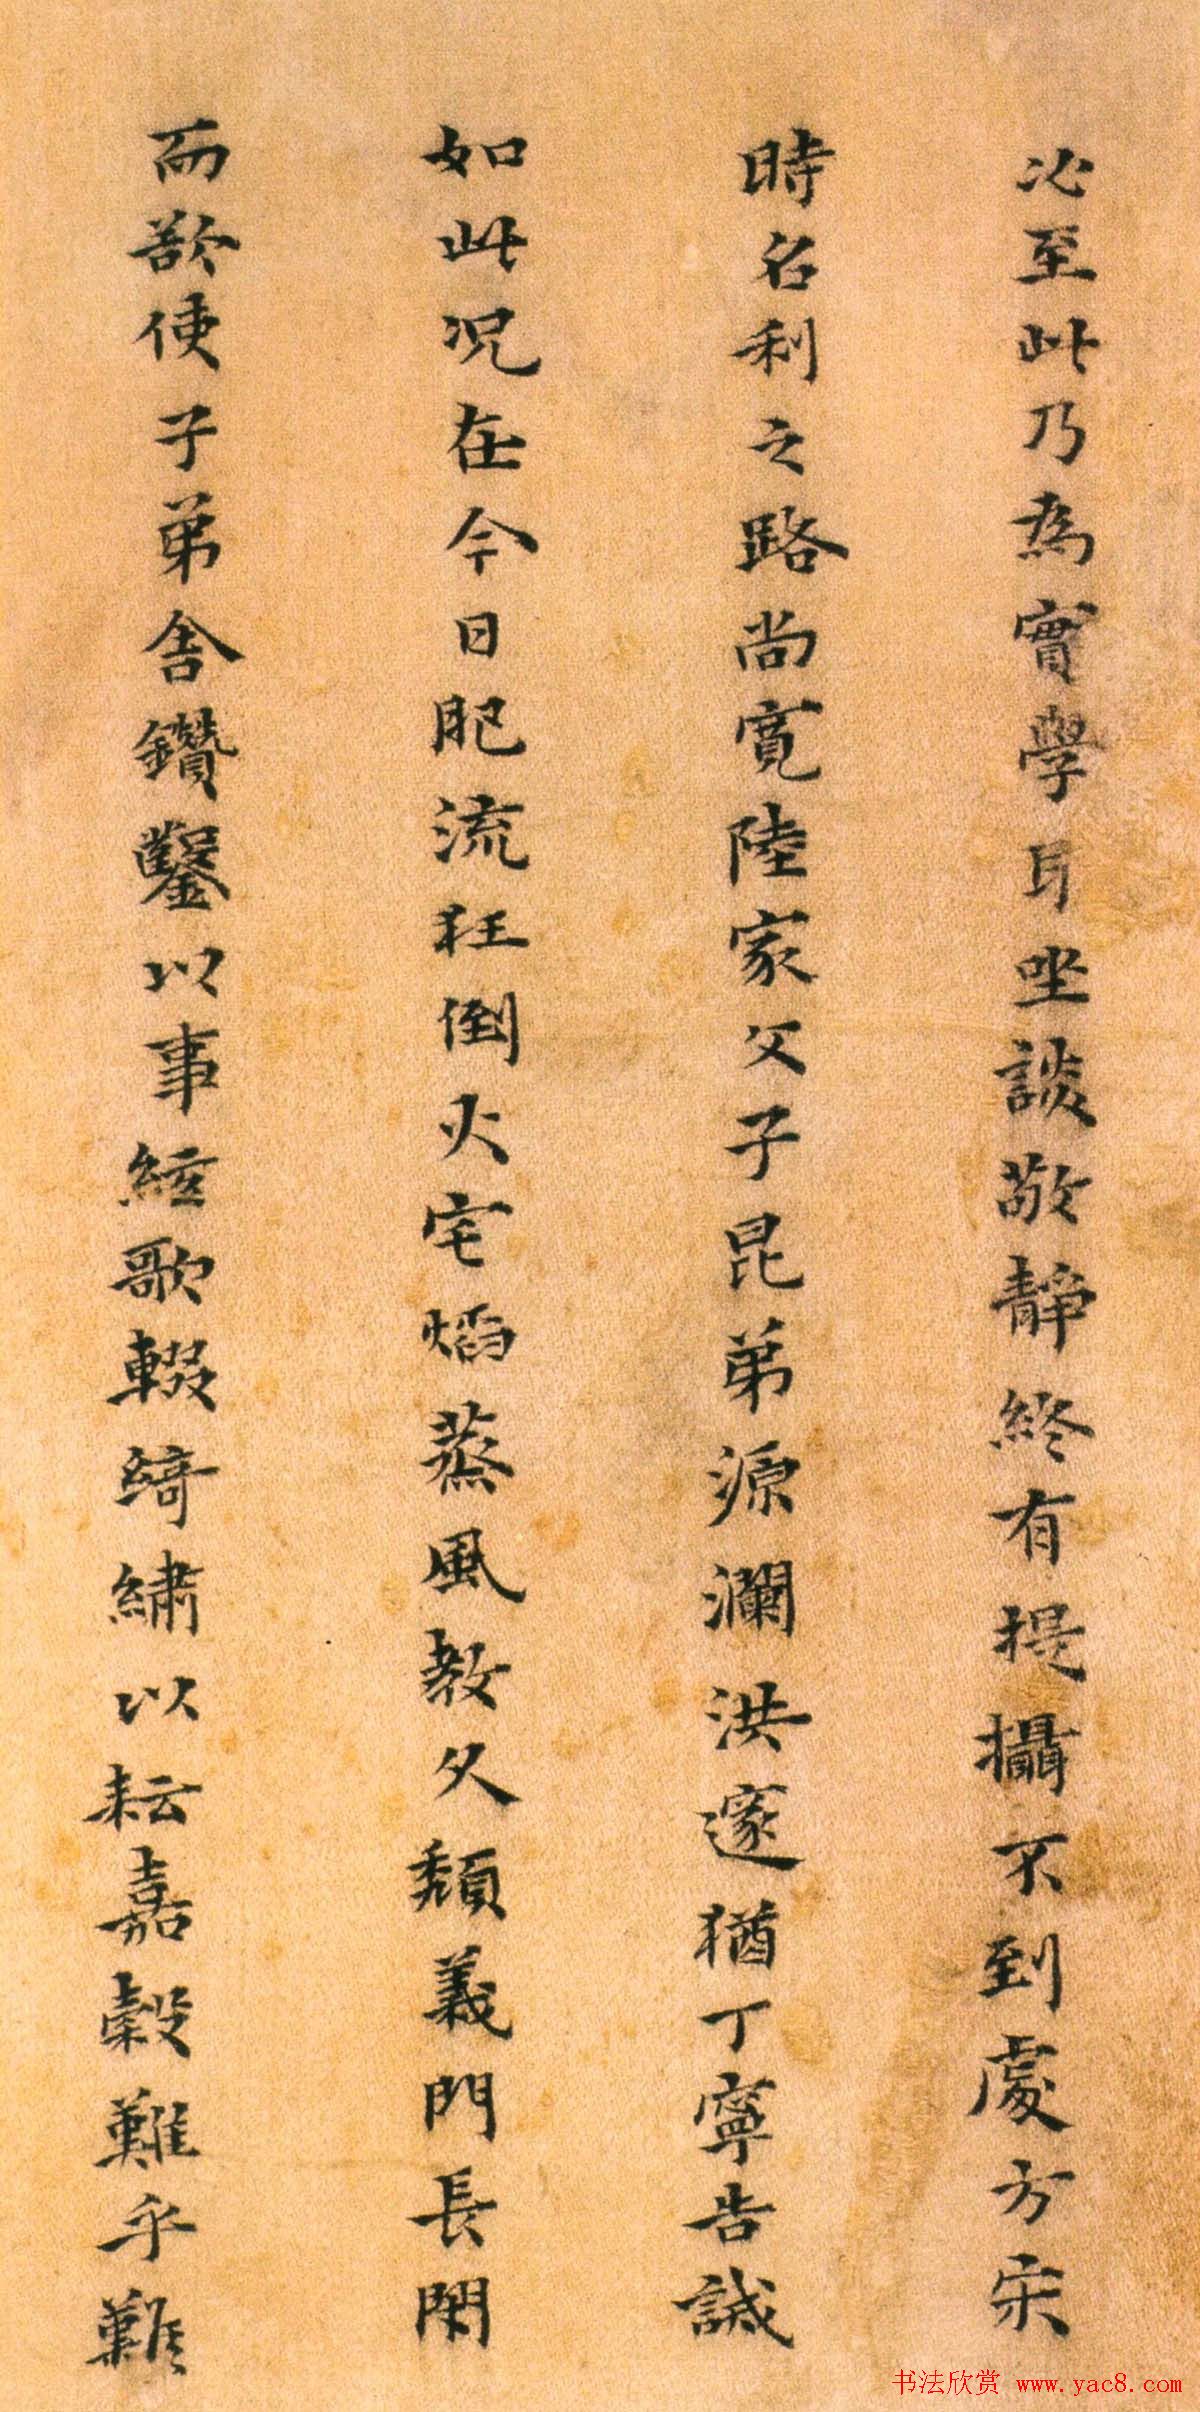 必至此乃為實學耳坐談敬靜終有提攝不到處方宋
時名利之路尚寬陸家父子昆弟源瀾洪邃猶丁寧告誡
如此況在今日肥流狂倒火宅熖蒸風教久頹義門長閑
而欲使子弟舍鑽鑿以事絃歌輟綺繡以耘嘉穀難乎難
书法欣赏 www.yac8.com